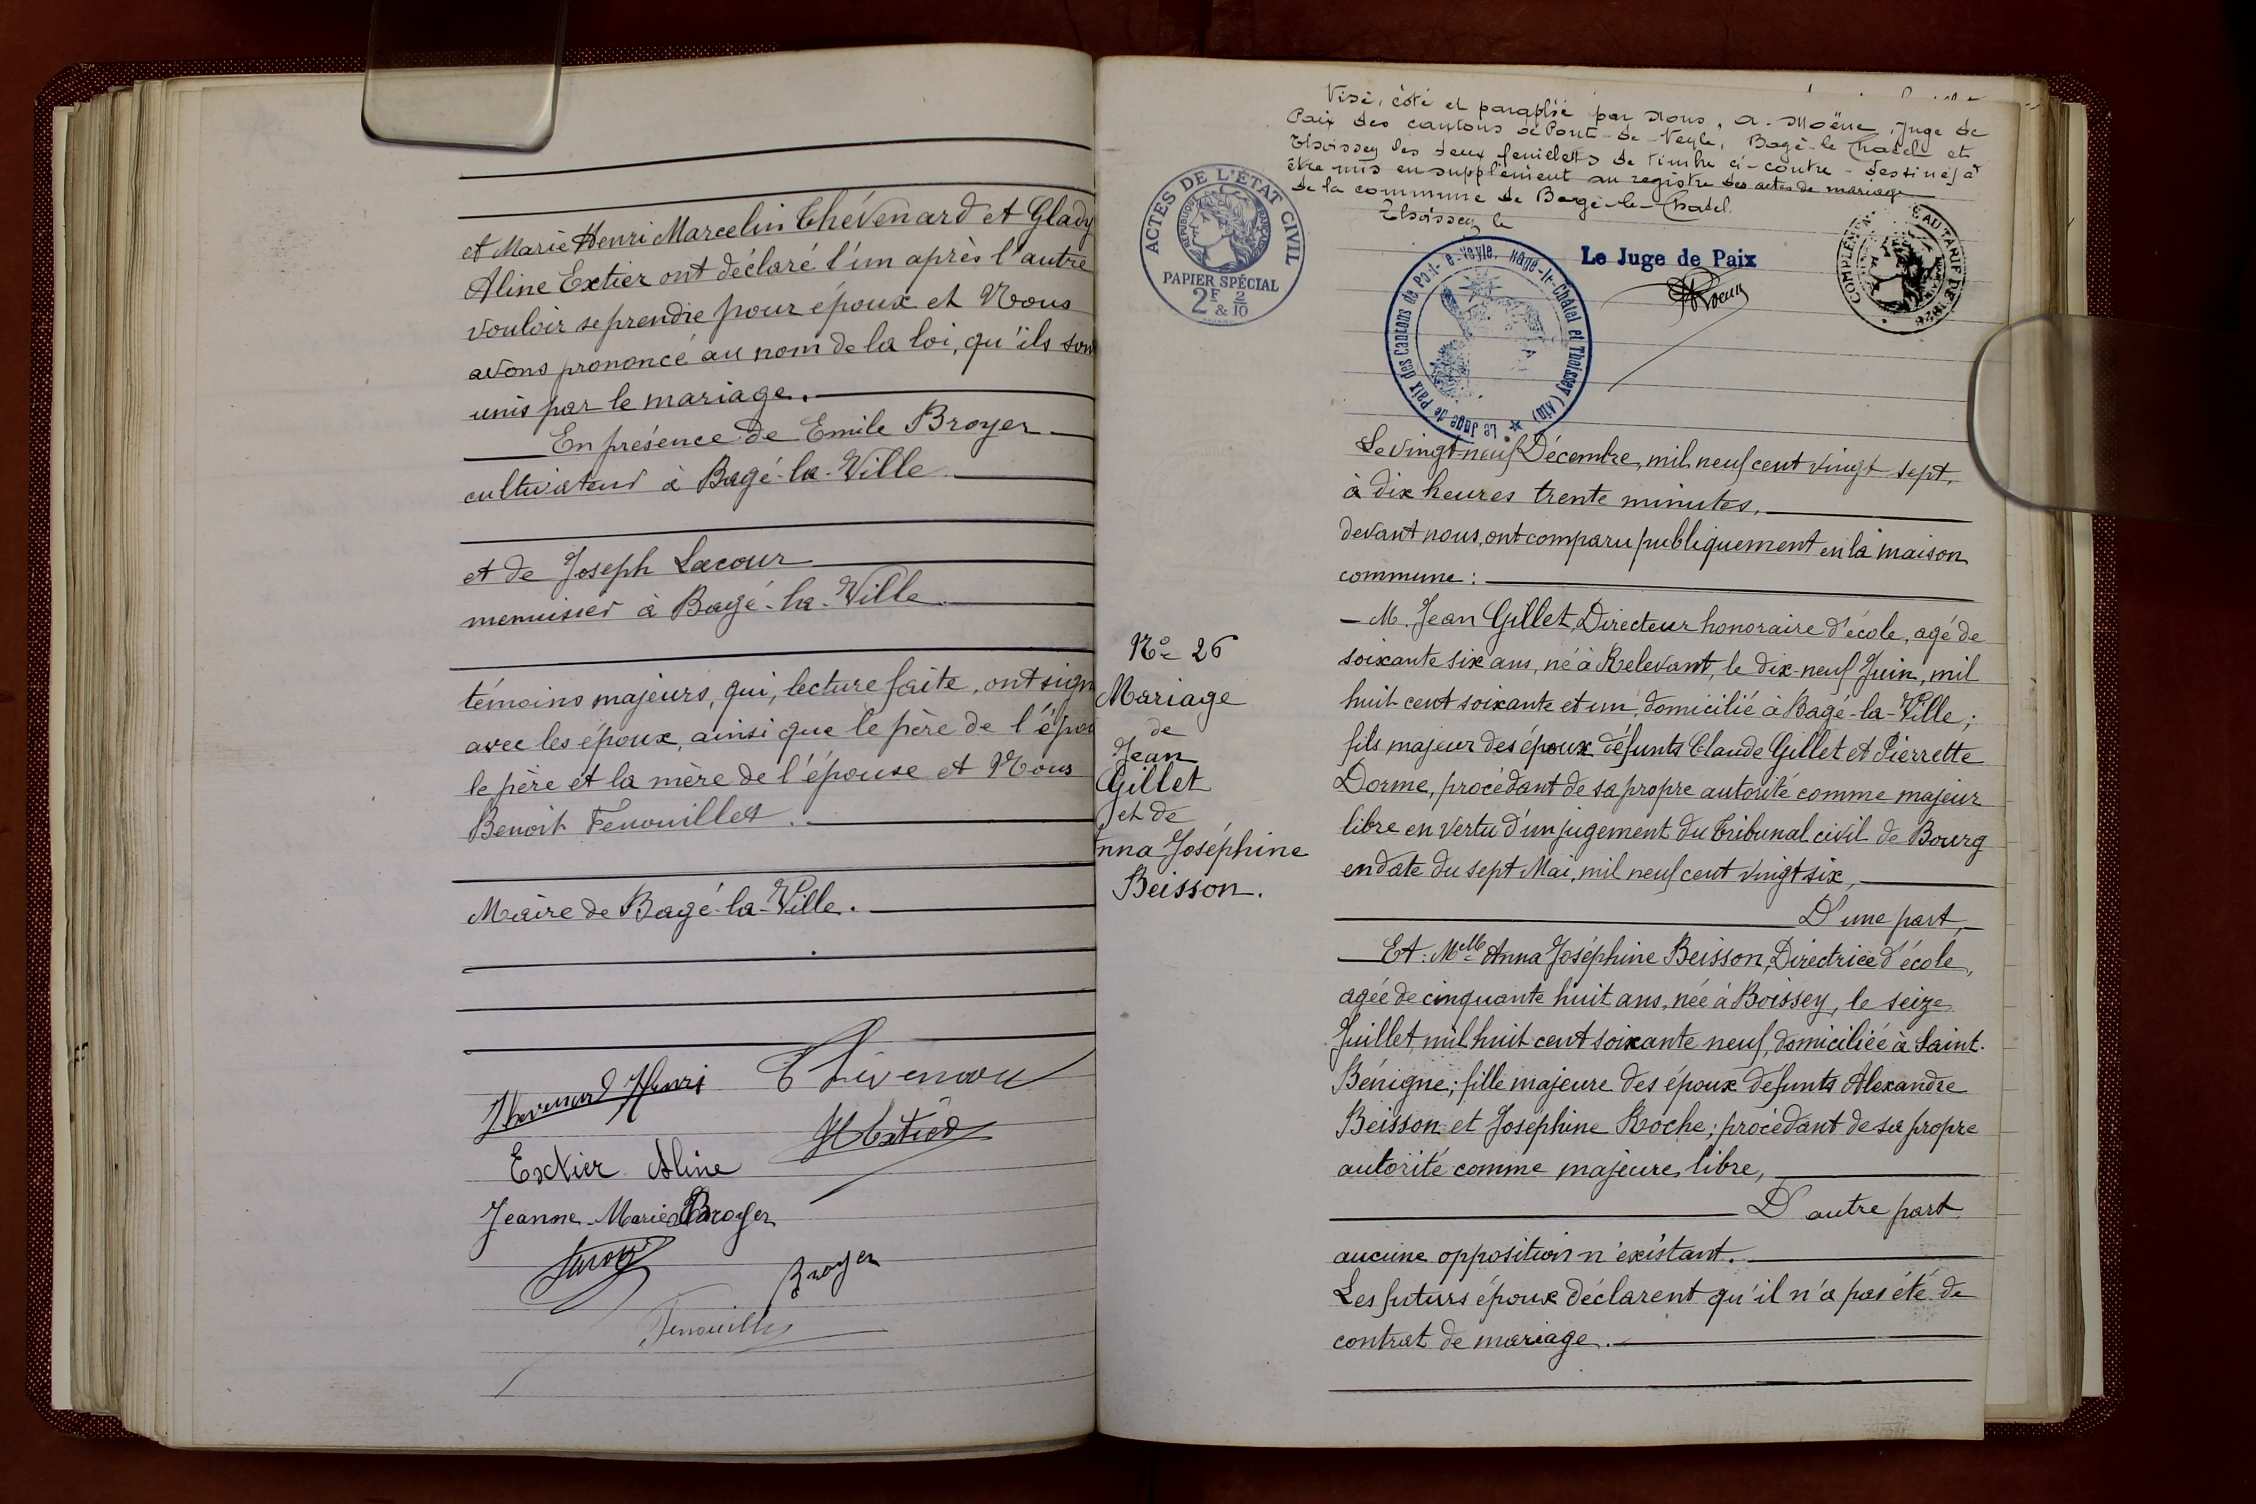 et Marie Henri Marcelin Thévenard et Glady
Aline Extier ont déclaré l'un après l'autre
vouloir se prendre pour époux et Nous
avons prononcé au nom de la loi, qu'ils son
unis par le mariage.
En présence de Emile Broyer
cultivateur à Bagé-la-Ville
et de Joseph Lacour
menuisier à Bagé-la-Ville
témoins majeurs, qui, lecture faite, ont sign
avec les époux, ainsi que le père de l'épou
le père et la mère de l'épouse et Nous
Benoit Fenouillet.
Maire de Bagé-la-Ville.
Thevenard Henri
Extier Aline
Jeanne-Marie Broyer
Broyer
Fenouillet
Visé, côté et paraphé par Nous, A. Moëne, Juge de
Paix des cantons de Pont-de-Veyle, Bagé-le-Chatel et
Thoissey les deux feuillets de timbre ci-contre destinés à
être mis en supplément au registre des actes de mariage
de la commune de Bagé-le-Chatel.
Thoissey le
ACTES DE L'ÉTAT CIVIL
RÉPUBLIQUE FRANÇAISE
PAPIER SPÉCIAL
2F & 2/10
Le Juge de Paix
Le Juge de Paix des Cantons de Pont-de-Veyle, Bâgé-le-Châtel et Thoissey (Ain)
Le vingt-neuf Décembre, mil neuf cent vingt sept,
à dix heures trente minutes,
devant nous, ont comparu publiquement en la maison
commune:
N° 26
Mariage
de
Jean
Gillet
et de
nna Joséphine
Beisson.
— M. Jean Gillet, Directeur honoraire d'école, agé de
soixante six ans, né à Relevant, le dix-neuf Juin, mil
huit cent soixante et un, domicilié à Bagé-la-Ville;
fils majeur des époux défunts Claude Gillet et Pierrette
Dorme, procédant de sa propre autorité comme majeur
libre en vertu d'un jugement du Tribunal civil de Bourg
en date du sept Mai, mil neuf cent vingt six,
D'une part,
Et: Melle Anna Joséphine Beisson, Directrice d'école,
agée de cinquante huit ans, née à Boissey, le seize
Juillet mil huit cent soixante neuf, domiciliée à Saint-
Bénigne; fille majeure des époux défunts Alexandre
Beisson et Josephine Roche; procédant de sa propre
autorité comme majeure libre,
D'autre part
aucune opposition n'existant.
Les futurs époux déclarent qu'il n'a pas été de
contrat de mariage.